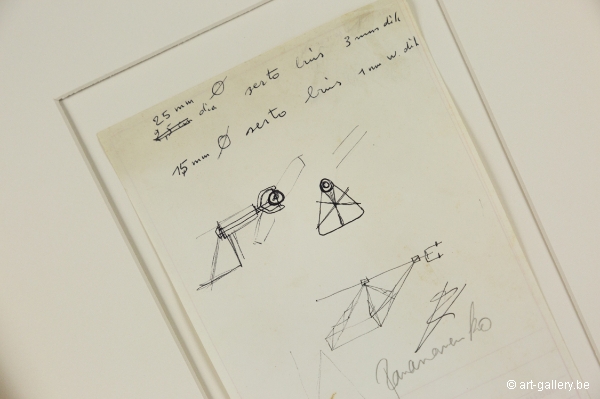 25 mm Ø serto buis 3 mm dik
2,5 m dia
15 mm Ø serto buis 1 mm w. dik
Panamarenko
© art-gallery.be